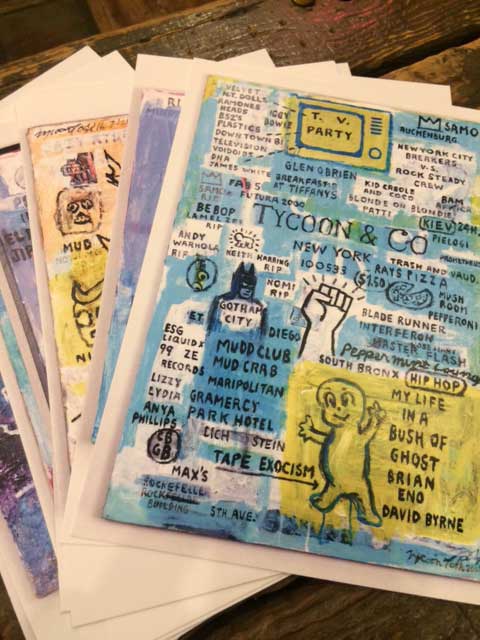 VELVET
N.Y. DOLLS
RAMONES
HEADS
B52'S
PLASTICS
DOWNTOWN B
TELEVISION
VOIDOIDS
DNA
JAMES WHITE
IGGY
BOWIE
T. V.
PARTY
SAMO
AUCHENBURG.
NEWYORK CITY
BREAKERS
V.S.
ROCK STEADY
CREW
GLEN OBRIEN
BREAKFAST
AT TIFFANYS
KID CREOLE
AND COCO
BAM
BLONDE ON BLONDIE
PATTI
KIEV 24H.
PIELOGI
SAMO
RIP
FAB 5
FUTURA 2000
BEBOP
LAMELZEE
RIP
TYCOON & CO
NEW YORK
100533
ANDY
WARHOLA
RIP
KEITH HARRING
RIP
NOMI
RIP
TRASH AND VAUD.
RAYS PIZZA
$1.50
MUSH
ROOM
PEPPERONI
GOTHAM
CITY
ET
DIEGO
BLADE RUNNER
INTERFERON
MASTER FLASH
Peppermint Loung
SOUTH BRONX
HIP HOP
ESG
LIQUIDX
99 ZE
RECORDS
LIZZY
LYDIA
ANYA
PHILLIPS
CB
GB
MUDD CLUB
MUD CRAB
MARIPOLITAN
GRAMERCY
PARK HOTEL
LICH STEIN
TAPE EXOCISM
MAX'S
ROCKEFELLE
ROCKFELLE
BUILDING
5TH AVE.
MY LIFE
IN A
BUSH OF
GHOST
BRIAN
ENO
DAVID BYRNE
MUD